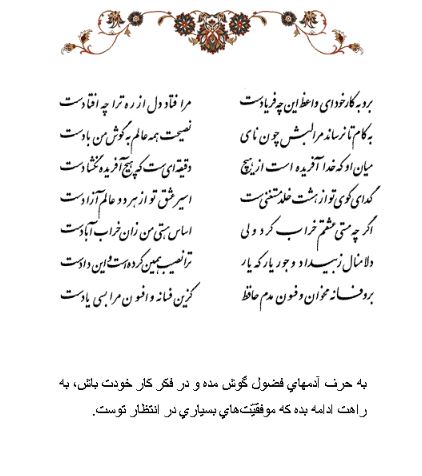 برو به کار خود ای واعظ این چه فریادست مرا فتاد دل از ره ترا چه افتادست
به کام تا نرساند مرا لبش چون نای نصیحت همه عالم به گوش من بادست
میان او که خدا آفریده است از هیچ دقیقه‌ای‌ست که هیچ آفریده نگشادست
گدای کوی تو از هشت خلد مستغنی‌ست اسیر عشق تو از هر دو عالم آزادست
اگر چه مستی عشقم خراب کرد ولی اساس هستی من زان خراب آبادست
دلا منال ز بیداد و جور یار که یار ترا نصیب همین کرده است و این دادست
برو فسانه مخوان و فسون مدم حافظ کزین فسانه و افسون مرا بسی یادست
به حرف آدمهاي فضول گوش مده و در فکر کار خودت باش، به
راهت ادامه بده که موفقيّت‌هاي بسياري در انتظار توست.